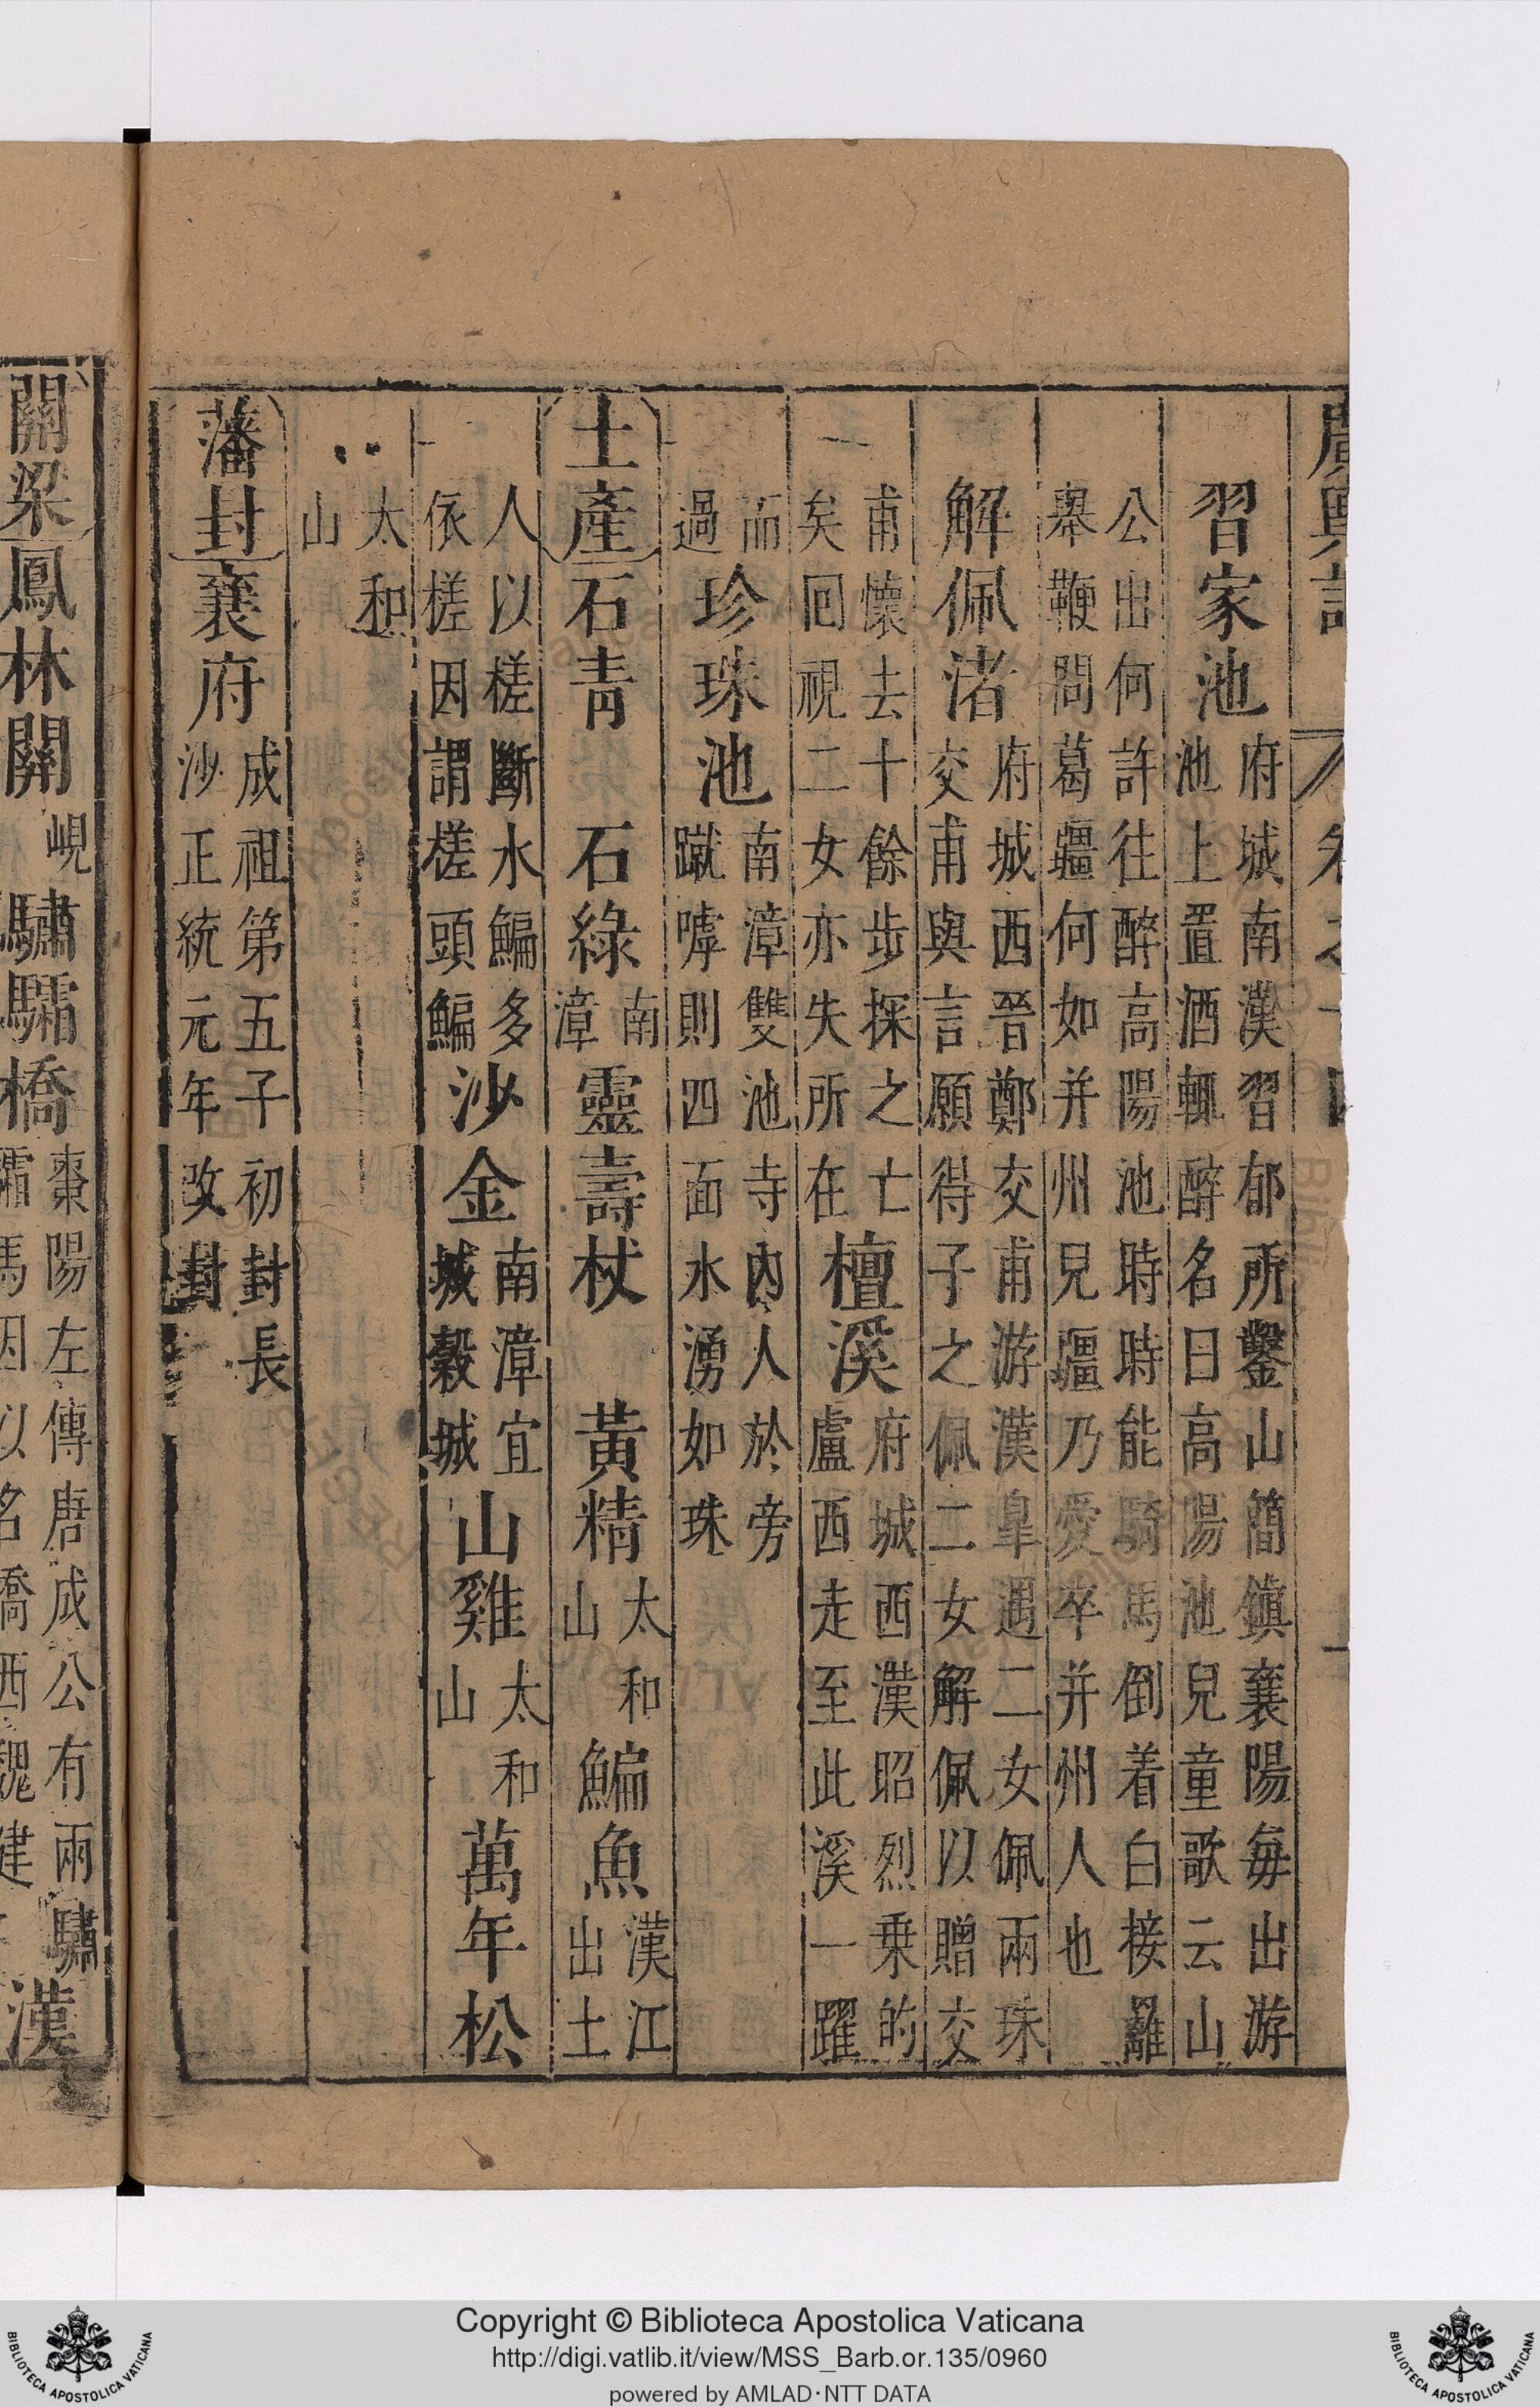 廣輿記 卷之十四
習家池 府城南漢習郁所鑿山簡鎮襄陽每出游
池上置酒輒醉名曰高陽池兒童歌云山
公出何許往醉高陽池時時能騎馬倒着白接䍦
舉鞭問葛疆何如并州兒疆乃愛卒并州人也
解佩渚 府城西晉鄭交甫游漢皐遇二女佩兩珠
交甫與言願得子之佩二女解佩以贈交
甫懷去十餘步探之亡
矣回視二女亦失所在 檀溪 府城西漢昭烈乗的
盧西走至此溪一躍
而
過 珍珠池 南漳雙池寺內人於旁
蹴嘑則四面水湧如珠
土產 石青 石綠 南
漳 靈壽杖 黃精 太和
山 鯿魚 漢江
出土
人以槎斷水鯿多
依槎因謂槎頭鯿 沙金 南漳宜
城榖城 山雞 太和
山 萬年松
太和
山
藩封 襄府 成祖第五子初封長
沙正統元年改封
關梁 鳳林關 峴 驌驦橋 棗陽左傳唐成公有兩驌
驦馬因以名橋西魏建 漢
Copyright © Biblioteca Apostolica Vaticana
http://digi.vatlib.it/view/MSS_Barb.or.135/0960
powered by AMLAD·NTT DATA
BIBLIOTECA APOSTOLICA VATICANA
BIBLIOTECA APOSTOLICA VATICANA